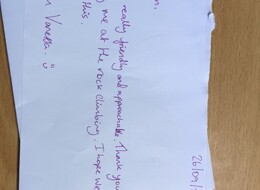 26/09/
n,
really friendly and approachable. Thank you
me at the rock climbing. I hope we
this.
Vanessa ☺